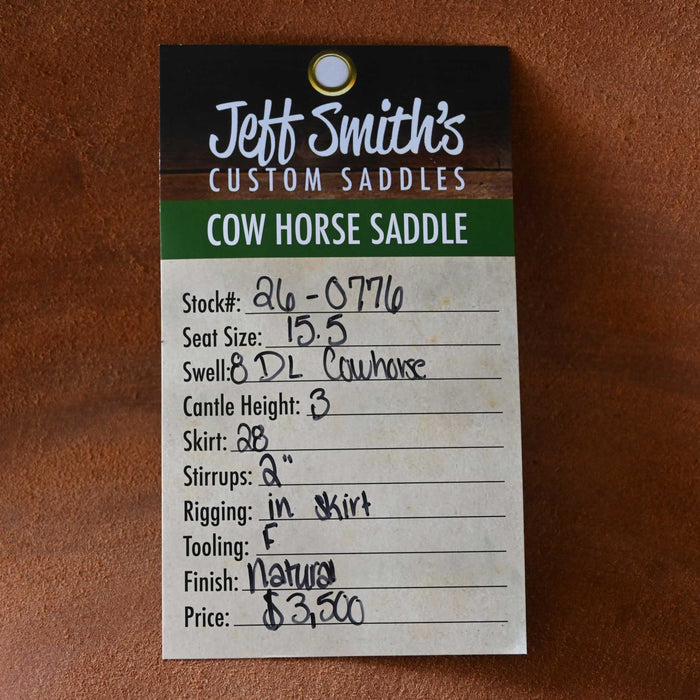 Jeff Smith's
CUSTOM SADDLES
COW HORSE SADDLE
Stock#: 26-0776
Seat Size: 15.5
Swell: 8 DL Cowhorse
Cantle Height: 3
Skirt: 28
Stirrups: 2"
Rigging: in skirt
Tooling: F
Finish: Natural
Price: $3,500